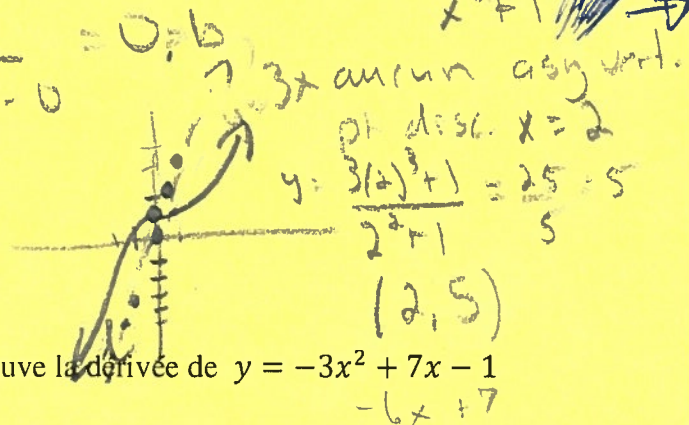 x² + 1
= 0, b
3x aucun asy vert.
- 0
pt disc. x = 2
y = 3(2)³+1 / 2²+1 = 25 / 5 = 5
(2, 5)
uve la dérivée de y = −3x² + 7x − 1
-6x +7